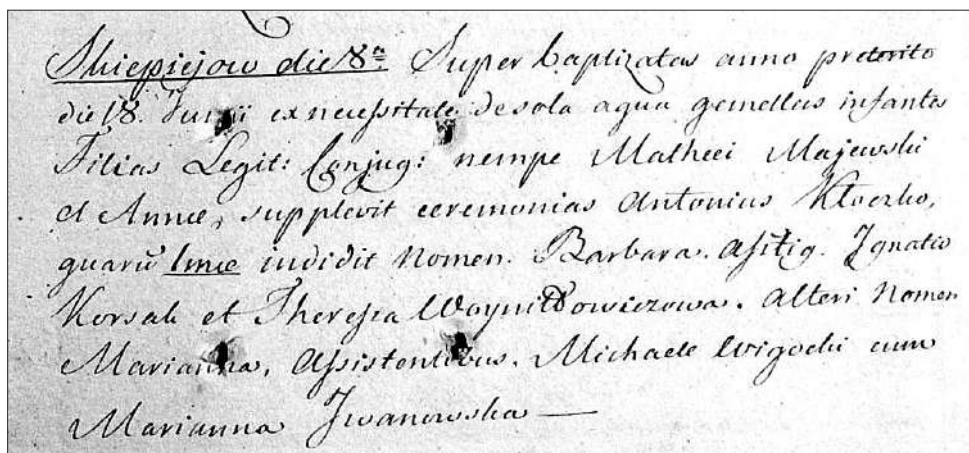 Skiepiejow die 8ª Super baptizatas anno preterito
die 18. Junii ex necessitate de sola agua gemellas infantes
Filias Legit: Conjug: nempe Mathei Majewski
et Annæ, supplevit ceremonias Antonius Kloczko,
quarū Imæ indidit Nomen. Barbara. Assitig. Ignatio
Korsak et Theresia Woynillowiczowa. Alteri Nomen
Marianna, Assistentibus. Michaele Wigocki cum
Marianna Iwanowska —